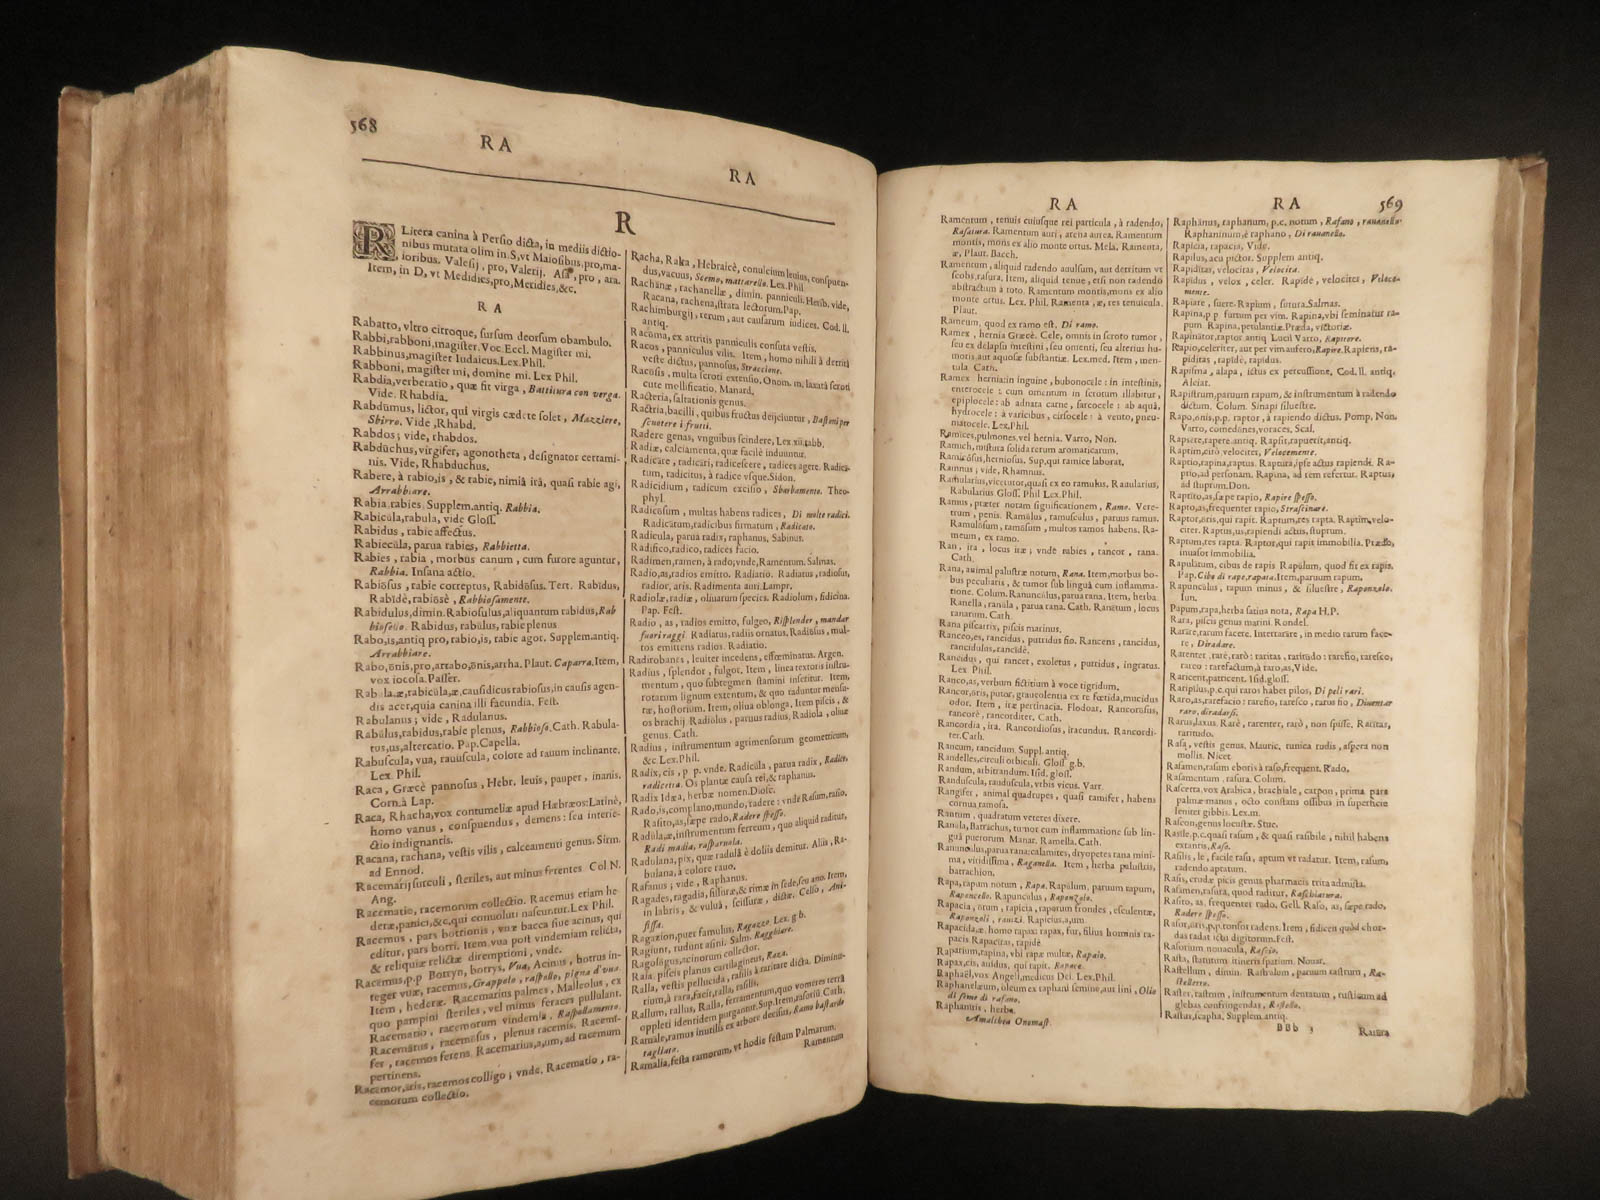 568
RA
RA
R
R Litera canina à Persio dicta, in mediis dictio-
nibus mutata olim in S, vt Maiosibus, pro, ma-
ioribus. Valesij, pro, Valerij. Asa, pro, ara.
Item, in D, vt Medidies, pro, Meridies, &c.
RA
Rabatto, vltro citroque, sursum deorsum obambulo.
Rabbi, rabboni, magister. Voc Eccl. Magister mi.
Rabbinus, magister Iudaicus. Lex. Phil.
Rabboni, magister mi, domine mi. Lex Phil.
Rabdia, verberatio, quæ fit virga, Battitura con verga.
Vide. Rhabdia.
Rabdūmus, lictor, qui virgis cædere solet, Mazziere,
Sbirro. Vide, Rhabd.
Rabdos; vide, rhabdos.
Rabdūchus, virgifer, agonotheta, designator certami-
nis. Vide, Rhabduchus.
Rabere, à rabio, is, & rabie, nimiâ irâ, quasi rabie agi,
Arrabbiare.
Rabia rabies. Supplem. antiq. Rabbia.
Rabicŭla, rabula, vide Gloss.
Rabidus, rabie affectus.
Rabiecŭla, parua rabies, Rabbietta.
Rabies, rabia, morbus canum, cum furore aguntur,
Rabbia. Insana actio.
Rabiōsus, rabie correptus, Rabidōsus. Tert. Rabĭdus,
Rabĭdè, rabiōsè, Rabbiosamente.
Rabidulus, dimin. Rabiosulus, aliquantum rabidus, Rab
biosello. Rabidus, rabŭlus, rabie plenus
Rabo, is, antiq pro, rabio, is, rabie agor. Supplem. antiq.
Arrabbiare.
Rabo, ōnis, pro, arrabo, ōnis, arrha. Plaut. Caparra. Item,
vox iocosa. Passer.
Rabula, æ, rabicŭla, æ, causidicus rabiosus, in causis agen-
dis acer, quia canina illi facundia. Fest.
Rabulanus; vide, Radulanus.
Rabŭlus, rabidus, rabie plenus, Rabbioso. Cath. Rabula-
tus, us, altercatio. Pap. Capella.
Rabuscula, vua, rauuscula, colore ad rauum inclinante.
Lex. Phil.
Raca, Græcè pannosus, Hebr. leuis, pauper, inanis.
Corn. à Lap.
Raca, Rhacha, vox contumeliæ apud Hæbræos: Latinè,
homo vanus, conspuendus, demens: seu interie-
ctio indignantis.
Racana, rachana, vestis vilis, calceamenti genus. Sirm.
ad Ennod.
Racemarij surculi, steriles, aut minus ferentes. Col N.
Ang.
Racematio, racemorum collectio. Racemus etiam he
deræ, panici, &c. qui conuoluti nascuntur. Lex Phil.
Racemus, pars botrionis, vuæ bacca siue acinus, qui
editur, pars botri. Item, vua post vindemiam relicta,
& reliquiæ relictæ diremptioni, vnde.
Racemus, p.p Botryn, botrys, Vua, Acinus, botrus in-
teger vuæ, racemus, Grappolo, raspollo, pigna d'vua
Item, hederæ. Racemarius palmes, Malleolus, ex
quo pampini steriles, vel minus feraces pullulant.
Racematio, racemorum vindemia. Raspollamento.
Racemātus, racemōsus, plenus racemis. Racemi-
fer, racemos ferens. Racemarius, a, um, ad racemum
pertinens.
Racemor, aris, racemos colligo; vnde. Racematio, ra-
cemorum collectio.
Racha, Raka, Hebraicè, conuicium leuius, conspuen-
dus, vacuus, Scemo, mattarello. Lex. Phil.
Rachanæ, rachanellæ, dimin. panniculi. Hesib. vide,
Racana, rachena, strata lectorum. Pap.
Rachimburgij, rerum, aut causarum iudices. Cod. ll.
antiq.
Racoma, ex attritis panniculis consuta vestis.
Racos, panniculus vilis. Item, homo nihili à detrita
veste dictus, pannosus, Straccione.
Racōsis, multa scroti extensio. Onom. in laxata scroti
cute mellificatio. Manard.
Racteria, saltationis genus.
Ractria, bacilli, quibus fructus deijciuntur, Bastoni per
scuotere i frutti.
Radere genas, vnguibus scindere, Lex xii. tabb.
Radiæ, calciamenta, quæ facilè induuntur.
Radicare, radicari, radicescere, radices agere. Radica-
tum, radicitus, à radice vsque. Sidon.
Radicidium, radicum excisio, Sbarbamento. Theo-
phyl.
Radicōsum, multas habens radices, Di molte radici.
Radicātum, radicibus firmatum, Radicato.
Radicula, parua radix, raphanus. Sabinus.
Radifico, radico, radices facio.
Radimen, ramen, à rado, vnde, Ramentum. Salmas.
Radio, as, radios emitto. Radiatio. Radiatus, radiosus,
radior, aris. Radimenta auri. Lampr.
Radiolæ, radiæ, oliuarum species. Radiolum, fidicina.
Pap. Fest.
Radio, as, radios emitto, fulgeo, Risplender, mandar
fuori raggi. Radiatus, radiis ornatus, Radiōsus, mul-
tos emittens radios. Radiatio.
Radirobanes, leuiter incedens, effœminatus. Argen.
Radius, splendor, fulgor. Item, linea textoris instru-
mentum, quo subtegmen stamini inseritur. Item,
rotarum lignum extentum, & quo raduntur mensu-
ræ, hostorium. Item, oliua oblonga. Item piscis, &
os brachij. Radiolus, paruus radius, Radiola, oliuæ
genus. Cath.
Radius, instrumentum agrimensorum geometricum,
&c Lex. Phil.
Radix, cis, p p. vnde. Radicŭla, parua radix, Radice,
radicetta. Os plantæ causa rei, & raphanus.
Radix Idæa, herbæ nomen. Diosc.
Rado, is, complano, mundo, radere: vnde Rasum, rasio,
Rasito, as, sæpe rado, Radere spesso.
Radŭla, æ, instrumentum ferreum, quo aliquid raditur,
Radi madia, rasparuola.
Radulana, pix, quæ radulâ è doliis demitur. Aliis, Ra-
bulana, à colore rauo.
Rafanus; vide, Raphanus.
Ragades, ragadia, fissuræ, & rimæ in sede, seu ano. Item,
in labris, & vuluâ, scissuræ, dictæ. Celso, Ani-
fissa.
Ragazion, puer famulus, Ragazzo Lex. g b.
Ragiunt, rudunt asini. Salm. Ragghiare.
Ragologus, acinorum collector.
Raia. piscis planus cartilagineus, Raza.
Ralla, vestis pellucida, rasilis à raritate dicta. Diminu-
tium, à rara, facit, ralla, rasilis.
Rallum, rallus, Ralla, ferramentum, quo vomeres terrâ
oppleti identidem purgantur. Sup. Item, rasoriũ. Cath.
Ramāle, ramus inutilis ex arbore decisus, Ramo bastardo
tagliato.
Ramalia, festa ramorum, vt hodie festum Palmarum.
Ramentum
RA
RA
569
Ramentum, tenuis cuiusque rei particula, à radendo,
Rasatura. Ramentum auri, arena aurea. Ramentum
montis, mons ex alio monte ortus. Mela. Ramenta,
æ, Plaut. Bacch.
Ramentum, aliquid radendo auulsum, aut detritum vt
scobs, rasura, Item, aliquid tenue, etsi non radendo
abstractum à toto. Ramentum montis, mons ex alio
monte ortus. Lex. Phil. Ramenta, æ, res tenuicula.
Plaut.
Rameum, quod ex ramo est, Di ramo.
Ramex, hernia Græcè. Cele, omnis in scroto tumor,
seu ex delapsu intestini, seu omenti, seu alterius hu-
moris aut aquosæ substantiæ. Lex. med. Item, men-
tula Cath.
Ramex hernia: in inguine, bubonocele: in intestinis,
enterocele: cum omentum in scrotum illabitur,
epiplocele: ab adnata carne, sarcocele: ab aquâ,
hydrocele: à varicibus, cirsocele: à vento, pneu-
matocele. Lex. Phil.
Ramices, pulmones, vel hernia. Varro, Non.
Ramich, mistura solida rerum aromaticarum.
Ramicōsus, herniosus. Sup. qui ramice laborat.
Ramnus; vide, Rhamnus.
Ramularius, vicetutor, quasi ex eo ramulus. Radularius,
Rabularius Gloss. Phil Lex. Phil.
Ramus, præter notam significationem, Ramo. Vere-
trum, penis. Ramŭlus, ramusculus, paruus ramus.
Ramulosum, ramōsum, multos ramos habens. Ra-
meum, ex ramo.
Ran, ira, locus iræ; vndè rabies, rancor, rana.
Cath.
Rana, animal palustræ notum, Rana. Item, morbus bo-
bus peculiaris, & tumor sub linguâ cum inflamma-
tione. Colum. Ranunculus, parua rana. Item, herba.
Ranella, ranŭla, parua rana. Cath. Ranētum, locus
ranarum. Cath.
Rana piscatrix, piscis marinus.
Ranceo, es, rancidus, putridus fio. Rancens, rancidus,
rancidulus, rancidè.
Rancidus, qui rancet, exoletus, putridus, ingratus.
Lex Phil.
Ranco, as, verbum fictitium à voce tigridum.
Rancor, ōris, putor, graueolentia ex re fœtida, mucidus
odor. Item, iræ pertinacia. Flodoar. Rancorōsus,
rancorè, rancorditer. Cath.
Rancordia, ira. Rancordiosus, iracundus. Rancordi-
ter. Cath.
Rancum, rancidum. Suppl. antiq.
Randelles, circuli orbiculi. Gloss g.b.
Randum, arbitrandum. Isid. gloss.
Randuscula, rauduscula, vrbis vicus. Varr.
Rangifer, animal quadrupes, quasi ramifer, habens
cornua, ramosa.
Rantum, quadratum veteres dixere.
Ranula, Batrachus, tumor cum inflammatione sub lin-
guâ puerorum Manar. Ramella, Cath.
Ranunculus, parua rana: calamites, dryopetes rana mini-
ma, viridissima, Raganella. Item, herba palustris,
batrachion.
Rapa, rapum notum, Rapa. Rapŭlum, paruum rapum,
Raponcello. Rapunculus, Raponzolo.
Rapacia, orum, rapicia, raporum frondes, esculentæ,
Raponzoli, rauizi. Rapicius, a, um.
Rapacida, æ, homo rapax: rapax, fur, filius hominis ra-
pacis Rapacitas, rapidè
Raparium, rapina, vbi rapæ multæ, Rapaio.
Rapax, cis, auidus, qui rapit. Rapace.
Raphaël, vox Angeli, medicus Dei. Lex. Phil.
Raphanelæum, oleum ex raphani semine, aut lini, Olio
di seme di rafano.
Raphanitis, herba.
Amalthea Onomast.
Raphănus, raphanum, p.c. notum, Rafano, rauanello.
Raphaninum, è raphano, Di rauanello.
Rapicia, rapacia, Vide.
Rapilus, acu pictor. Supplem antiq.
Rapiditas, velocitas, Velocita.
Rapidus, velox, celer. Rapidè, velociter, Veloce-
mente.
Rapiare, suere. Rapium, sutura. Salmas.
Rapina, p p. furtum per vim. Rapina, vbi seminatur ra-
pum Rapina, petulantiæ. Præda, victoriæ.
Rapinator, raptor antiq Lucil Varro, Rapitore.
Rapio, celeriter, aut per vim aufero, Rapire. Rapiens, ra-
piditas, rapidè, rapidus.
Rapisma, alapa, ictus ex percussione. Cod. ll. antiq.
Alciat.
Rapistrum, paruum rapum, & instrumentum à radendo
dictum. Colum. Sinapi siluestre.
Rapo, ōnis, p.p. raptor, à rapiendo dictus. Pompo, Non.
Varro, comedōnes, voraces. Scal.
Rapsere, rapere, antiq. Rapsit, rapuerit, antiq.
Raptim, citò velociter, Velocemente.
Raptio, rapina, raptus. Raptura, ipse actus rapiendi. Ra-
ptio, ad personam. Rapina, ad rem refertur. Raptus,
ad stuprum. Don.
Raptito, as, sæpe rapio, Rapire spesso.
Rapto, as, frequenter rapio, Strascinare.
Raptor, oris, qui rapit. Raptum, res rapta. Raptim, velo-
citer. Raptus, us, rapiendi actis, stuprum.
Raptum, res rapta. Raptor, qui rapit immobilia. Prædo,
inuasor immobilia.
Rapulatum, cibus de rapis Rapŭlum, quod fit ex rapis.
Pap. Cibo di rape, rapata. Item, paruum rapum.
Rapunculus, rapum minus, & siluestre, Raponzolo.
Iun.
Rapum, rapa, herba satiua nota, Rapa H.P.
Rara, piscis genus marini. Rondel.
Rarāre, rarum facere. Interrarāre, in medio rarum face-
re, Diradare.
Rarenter, rarè, rarò: raritas, raritūdo: rarefio, raresco,
rareo: rarefactum, à raro, as, Vide.
Raricent, parricent. Isid. gloss.
Raripilus, p.c. qui raros habet pilos, Di peli rari.
Raro, as, rarefacio: rarefio, raresco, rarus fio, Diuentar
raro, diradarsi.
Rarus, laxus. Rarè, rarenter, rarò, non spisse. Raritas,
raritudo.
Rasa, vestis genus. Mauric. tunica rudis, aspera non
mollis. Nicet.
Rasamen, rasum eboris à raso, frequent. Rado,
Rasamentum, rasura. Colum.
Rascetta, vox Arabica, brachiale, carpon, prima pars
palmæ manus, octo constans ossibus in superficie
leniter gibbis. Lex. m.
Rascon, genus locustæ. Stuc.
Rasile. p.c. quasi rasum, & quasi rasibile, nihil habens
extantis, Raso.
Rasilis, le, facile rasu, aptum vt radatur. Item, rasum,
radendo aptatum.
Rasis, crudæ picis genus pharmacis trita admista.
Rasamen, rasura, quod raditur, Raschiatura.
Rasito, as, frequenter rado, Gell. Raso, as, sæpe rado,
Radere spesso.
Rasor, ōris, p.p. tonsor radens. Item, fidicen quòd chor-
das radat ictu digitorum. Fest.
Rasorium nouacula, Rasoio.
Rasta, statutum itineris spatium. Nouat.
Rastellum, dimin. Rastrulum, paruum rastrum, Ra-
stelletto.
Raster, rastrum, instrumentum dentatum, rusticum ad
glebas confringendas, Rastello.
Rastus, scapha, Supplem. antiq.
BBb 3
Rasura